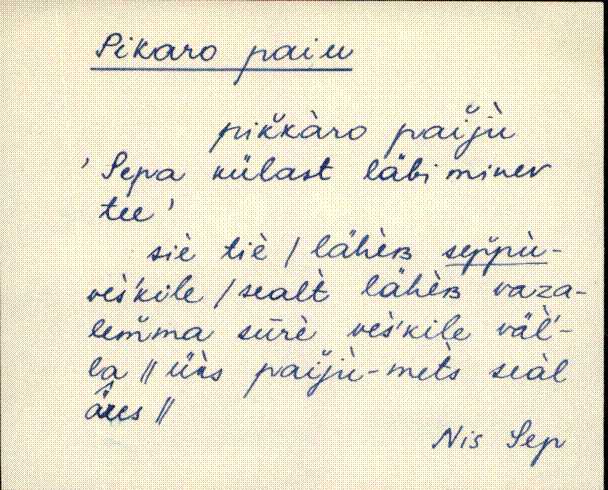 Pikaro paiu
pik̆kàro paĭjù
'Sepa külast läbi minev
tee'
siè tiè / lähèʙ sep̆pù-
vès'kile / sealt̀ lähèʙ vaza-
lem̆ma sūrè vès'kile väl'-
la // ü̬s paĭjù-met̀s seàl
äres //
Nis Sep